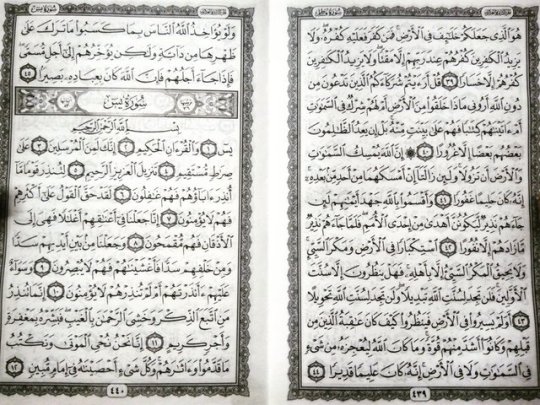 سُورَةُ فَاطِرٍ
هُوَ الَّذِي جَعَلَكُمْ خَلَٰٓئِفَ فِي الْأَرْضِ فَمَن كَفَرَ فَعَلَيْهِ كُفْرُهُۥ وَلَا
يَزِيدُ الْكَٰفِرِينَ كُفْرُهُمْ عِندَ رَبِّهِمْ إِلَّا مَقْتًا وَلَا يَزِيدُ الْكَٰفِرِينَ
كُفْرُهُمْ إِلَّا خَسَارًا ٣٩ قُلْ أَرَءَيْتُمْ شُرَكَآءَكُمُ الَّذِينَ تَدْعُونَ مِن
دُونِ اللَّهِ أَرُونِي مَاذَا خَلَقُوا مِنَ الْأَرْضِ أَمْ لَهُمْ شِرْكٌ فِي السَّمَٰوَٰتِ
أَمْ ءَاتَيْنَٰهُمْ كِتَٰبًا فَهُمْ عَلَىٰ بَيِّنَتٍ مِّنْهُ بَلْ إِن يَعِدُ الظَّٰلِمُونَ
بَعْضُهُم بَعْضًا إِلَّا غُرُورًا ٤٠ ۞ إِنَّ اللَّهَ يُمْسِكُ السَّمَٰوَٰتِ
وَالْأَرْضَ أَن تَزُولَا وَلَئِن زَالَتَآ إِنْ أَمْسَكَهُمَا مِنْ أَحَدٍ مِّنۢ بَعْدِهِۦٓ
إِنَّهُۥ كَانَ حَلِيمًا غَفُورًا ٤١ وَأَقْسَمُوا بِاللَّهِ جَهْدَ أَيْمَٰنِهِمْ لَئِن
جَآءَهُمْ نَذِيرٌ لَّيَكُونُنَّ أَهْدَىٰ مِنْ إِحْدَى الْأُمَمِ فَلَمَّا جَآءَهُمْ نَذِيرٌ
مَّا زَادَهُمْ إِلَّا نُفُورًا ٤٢ اسْتِكْبَارًا فِي الْأَرْضِ وَمَكْرَ السَّيِّئِ
وَلَا يَحِيقُ الْمَكْرُ السَّيِّئُ إِلَّا بِأَهْلِهِۦ فَهَلْ يَنظُرُونَ إِلَّا سُنَّتَ
الْأَوَّلِينَ فَلَن تَجِدَ لِسُنَّتِ اللَّهِ تَبْدِيلًا وَلَن تَجِدَ لِسُنَّتِ اللَّهِ تَحْوِيلًا
٤٣ أَوَلَمْ يَسِيرُوا فِي الْأَرْضِ فَيَنظُرُوا كَيْفَ كَانَ عَٰقِبَةُ الَّذِينَ مِن
قَبْلِهِمْ وَكَانُوٓا أَشَدَّ مِنْهُمْ قُوَّةً وَمَا كَانَ اللَّهُ لِيُعْجِزَهُۥ مِن شَيْءٍ
فِي السَّمَٰوَٰتِ وَلَا فِي الْأَرْضِ إِنَّهُۥ كَانَ عَلِيمًا قَدِيرًا ٤٤
٤٣٩
سُورَةُ يسٓ
وَلَوْ يُؤَاخِذُ اللَّهُ النَّاسَ بِمَا كَسَبُوا مَا تَرَكَ عَلَىٰ
ظَهْرِهَا مِن دَآبَّةٍ وَلَٰكِن يُؤَخِّرُهُمْ إِلَىٰٓ أَجَلٍ مُّسَمًّى
فَإِذَا جَآءَ أَجَلُهُمْ فَإِنَّ اللَّهَ كَانَ بِعِبَادِهِۦ بَصِيرًا ٤٥
سُورَةُ يسٓ
بِسْمِ اللَّهِ الرَّحْمَٰنِ الرَّحِيمِ
يسٓ ١ وَالْقُرْءَانِ الْحَكِيمِ ٢ إِنَّكَ لَمِنَ الْمُرْسَلِينَ ٣ عَلَىٰ
صِرَٰطٍ مُّسْتَقِيمٍ ٤ تَنزِيلَ الْعَزِيزِ الرَّحِيمِ ٥ لِتُنذِرَ قَوْمًا مَّآ
أُنذِرَ ءَابَآؤُهُمْ فَهُمْ غَٰفِلُونَ ٦ لَقَدْ حَقَّ الْقَوْلُ عَلَىٰٓ أَكْثَرِهِمْ
فَهُمْ لَا يُؤْمِنُونَ ٧ إِنَّا جَعَلْنَا فِيٓ أَعْنَٰقِهِمْ أَغْلَٰلًا فَهِيَ إِلَى
الْأَذْقَانِ فَهُم مُّقْمَحُونَ ٨ وَجَعَلْنَا مِنۢ بَيْنِ أَيْدِيهِمْ سَدًّا
وَمِنْ خَلْفِهِمْ سَدًّا فَأَغْشَيْنَٰهُمْ فَهُمْ لَا يُبْصِرُونَ ٩ وَسَوَآءٌ
عَلَيْهِمْ ءَأَنذَرْتَهُمْ أَمْ لَمْ تُنذِرْهُمْ لَا يُؤْمِنُونَ ١٠ إِنَّمَا تُنذِرُ
مَنِ اتَّبَعَ الذِّكْرَ وَخَشِيَ الرَّحْمَٰنَ بِالْغَيْبِ فَبَشِّرْهُ بِمَغْفِرَةٍ
وَأَجْرٍ كَرِيمٍ ١١ إِنَّا نَحْنُ نُحْيِ الْمَوْتَىٰ وَنَكْتُبُ
مَا قَدَّمُوا وَءَاثَٰرَهُمْ وَكُلَّ شَيْءٍ أَحْصَيْنَٰهُ فِيٓ إِمَامٍ مُّبِينٍ ١٢
٤٤٠